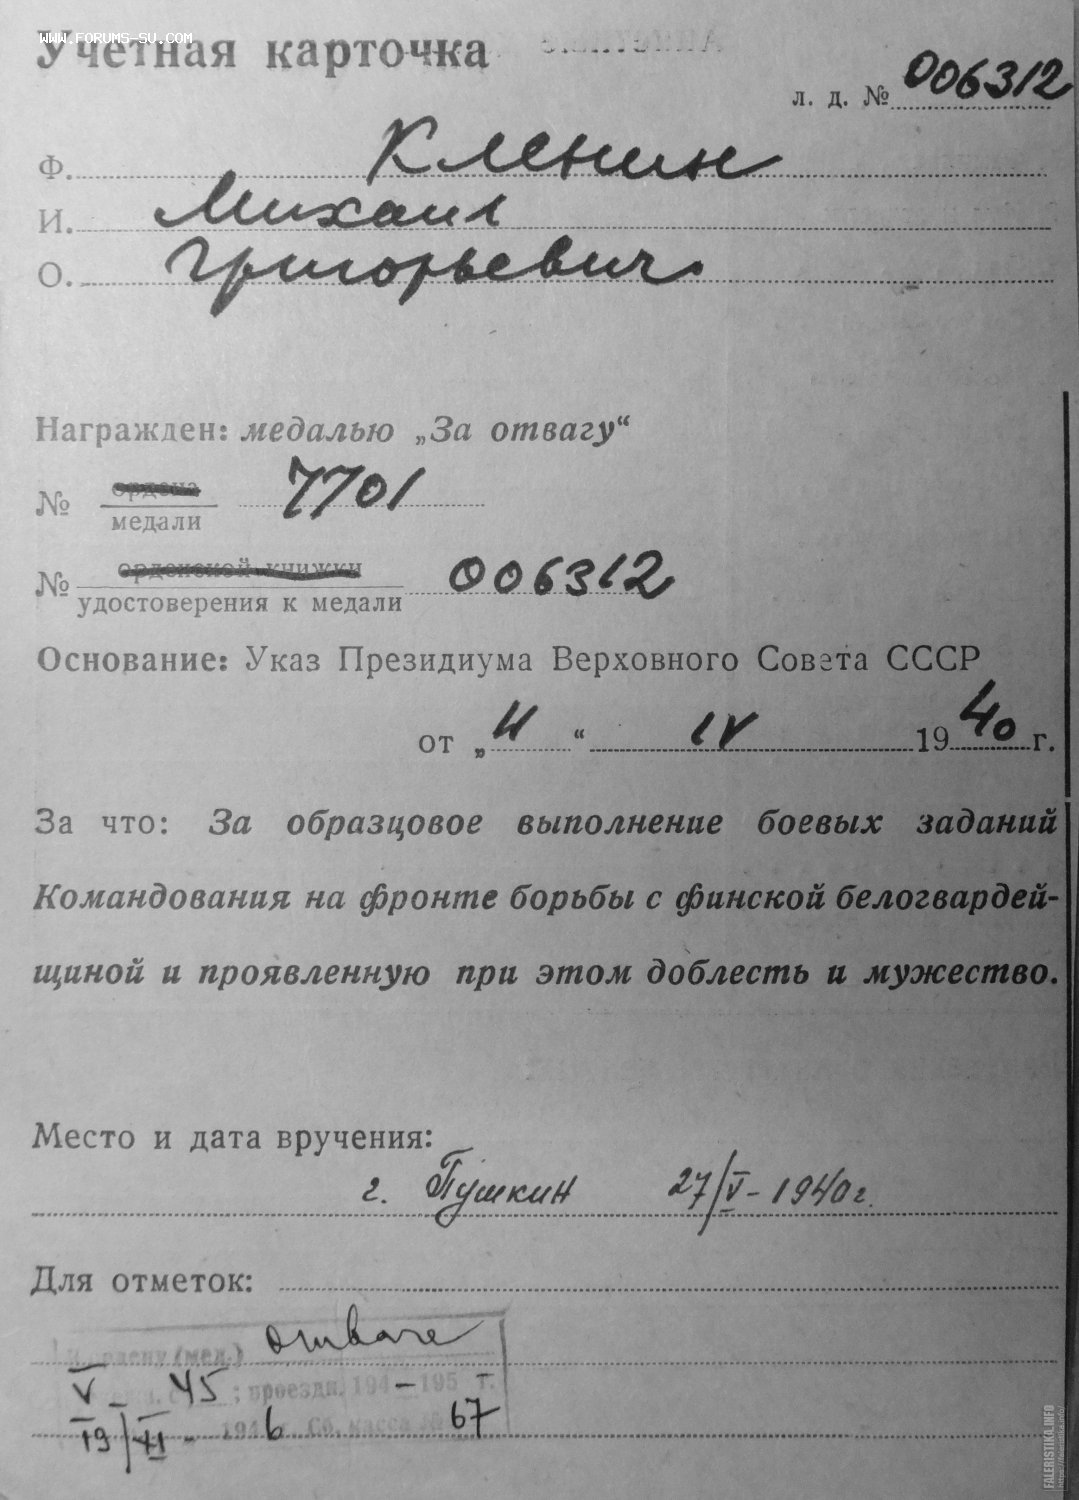 WWW.FORUMS-SU.COM
Учетная карточка
л. д. № 006312
Ф. Кленин
И. Михаил
О. Григорьевич
Награжден: медалью „За отвагу“
№ ордена 7701
медали
№ орденской книжки 006312
удостоверения к медали
Основание: Указ Президиума Верховного Совета СССР
от „11“ IV 1940 г.
За что: За образцовое выполнение боевых заданий
Командования на фронте борьбы с финской белогвардей-
щиной и проявленную при этом доблесть и мужество.
Место и дата вручения:
г. Пушкин 27/V-1940 г.
Для отметок:
ордену (мед.) отваге
V - 45 ; проездн. 194 - 195 г.
19/VI - 194 6 г. Сб. касса № 67
FALERISTIKA.INFO
https://faleristika.info/